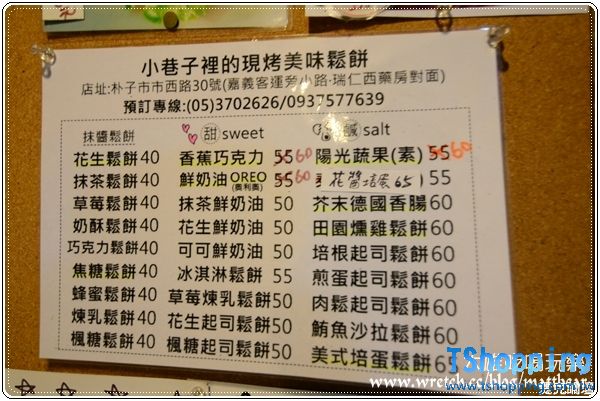 小巷子裡的現烤美味鬆餅
店址:朴子市市西路30號(嘉義客運旁小路·瑞仁西藥房對面)
預訂專線:(05)3702626/0937577639
抹醬鬆餅
花生鬆餅40
抹茶鬆餅40
草莓鬆餅40
奶酥鬆餅40
巧克力鬆餅40
焦糖鬆餅40
蜂蜜鬆餅40
煉乳鬆餅40
楓糖鬆餅40
甜 sweet
香蕉巧克力 55 60
鮮奶油 OREO (奧利奧) 55 60
抹茶鮮奶油 50
花生鮮奶油 50
可可鮮奶油 50
冰淇淋鬆餅 55
草莓煉乳鬆餅 50
花生起司鬆餅 50
楓糖起司鬆餅 50
鹹 salt
陽光蔬果(素) 55 60
55
芥末德國香腸60
田園燻雞鬆餅60
培根起司鬆餅60
煎蛋起司鬆餅60
肉鬆起司鬆餅60
鮪魚沙拉鬆餅60
美式培蛋鬆餅
TShopping
www.tshopping.com.tw